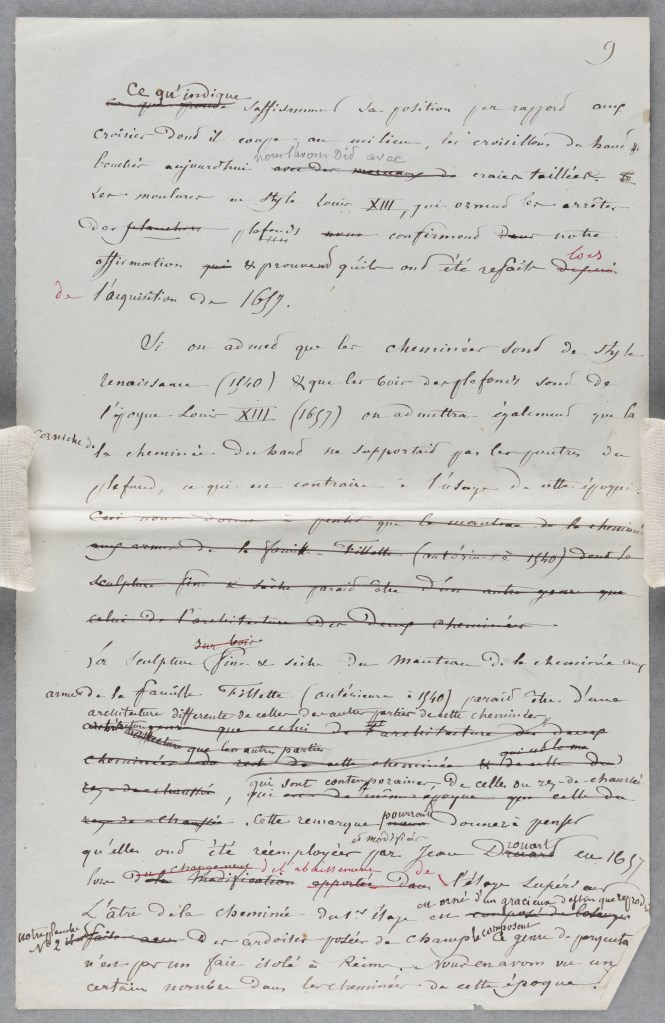 9
Ce qu'indique
suffisamment sa position par rapport aux
croisées dont il coupe au milieu, les croisillons du haut &
nous l'avons dit avec
bouchés aujourd'hui avec des morceaux de craies taillées.
Les moulures en style Louis XIII, qui ornent les arrêtes
des planchers plafonds nous confirment dans notre
affirmation qui & prouvent qu'ils ont été refaits depuis
lors
de l'acquisition de 1657.
Si on admet que les cheminées sont de style
renaissance (1540) & que les bois des plafonds sont de
l'époque Louis XIII (1657) on admettra également que la
corniche de
la cheminée du haut ne supportait pas les poutres du
plafond, ce qui est contraire à l'usage de cette époque.
Ceci nous donne à penser que le manteau de la cheminée
aux armes de la famille Fillette (antérieure à 1540) dont la
sculpture fine & sèche paraît être d'un autre genre que
celui de l'architecture des deux cheminées
sur bois
La sculpture fine & sèche du manteau de la cheminée aux
armes de la famille Fillette (antérieure à 1540) paraît être d'une
architecture différente de celles des autres parties de cette cheminée,
genre que celui de l'architecture des deux
architecture que les autres parties
qui est le me
cheminées du reste de cette cheminée & de celle du
qui sont contemporaines, de celles du rez-de-chaussée
rez-de-chaussée, qui est de même époque que celle du
pourrait
rez-de-chaussée. Cette remarque donner à penser
et modifiées
qu'elles ont été réemployées par Jean Drouart en 1657
du changement et abaissement de
lors de la modification apportée dans l'étage supérieur
est orné d'un gracieux dessin que reproduit
L'âtre de la cheminée du 1er étage est composé de losanges
notre planche
No 2 il
le composent
faits avec des ardoises posées de champ. Ce genre de parquetage
n'est pas un fait isolé à Reims. Nous en avons vu un
certain nombre dans les cheminées de cette époque.